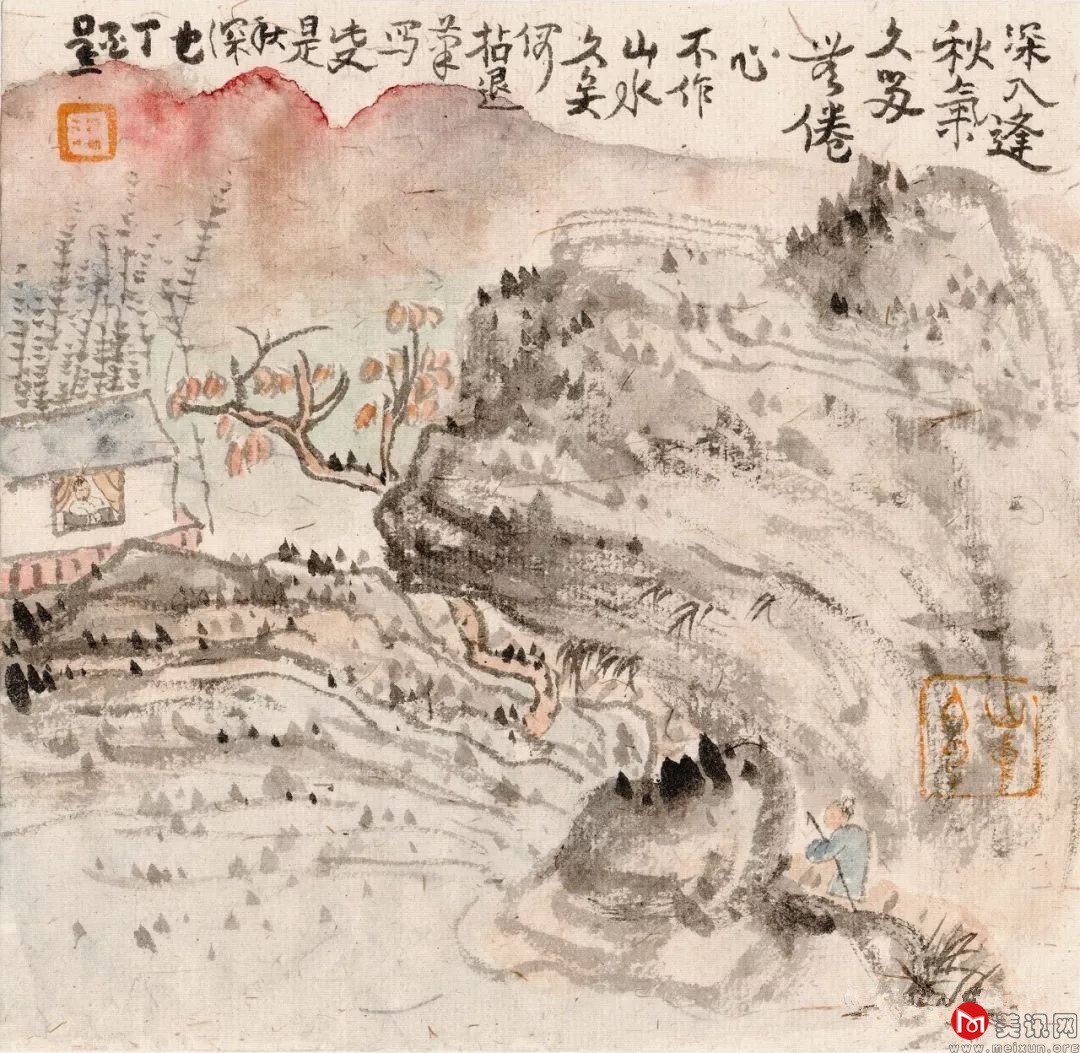 深入逢
秋氣
久留
無倦
心
不作
山水
久矣
何
拈退
筆
写
是
秋
深
也
丁
美讯网
www.meixun.org